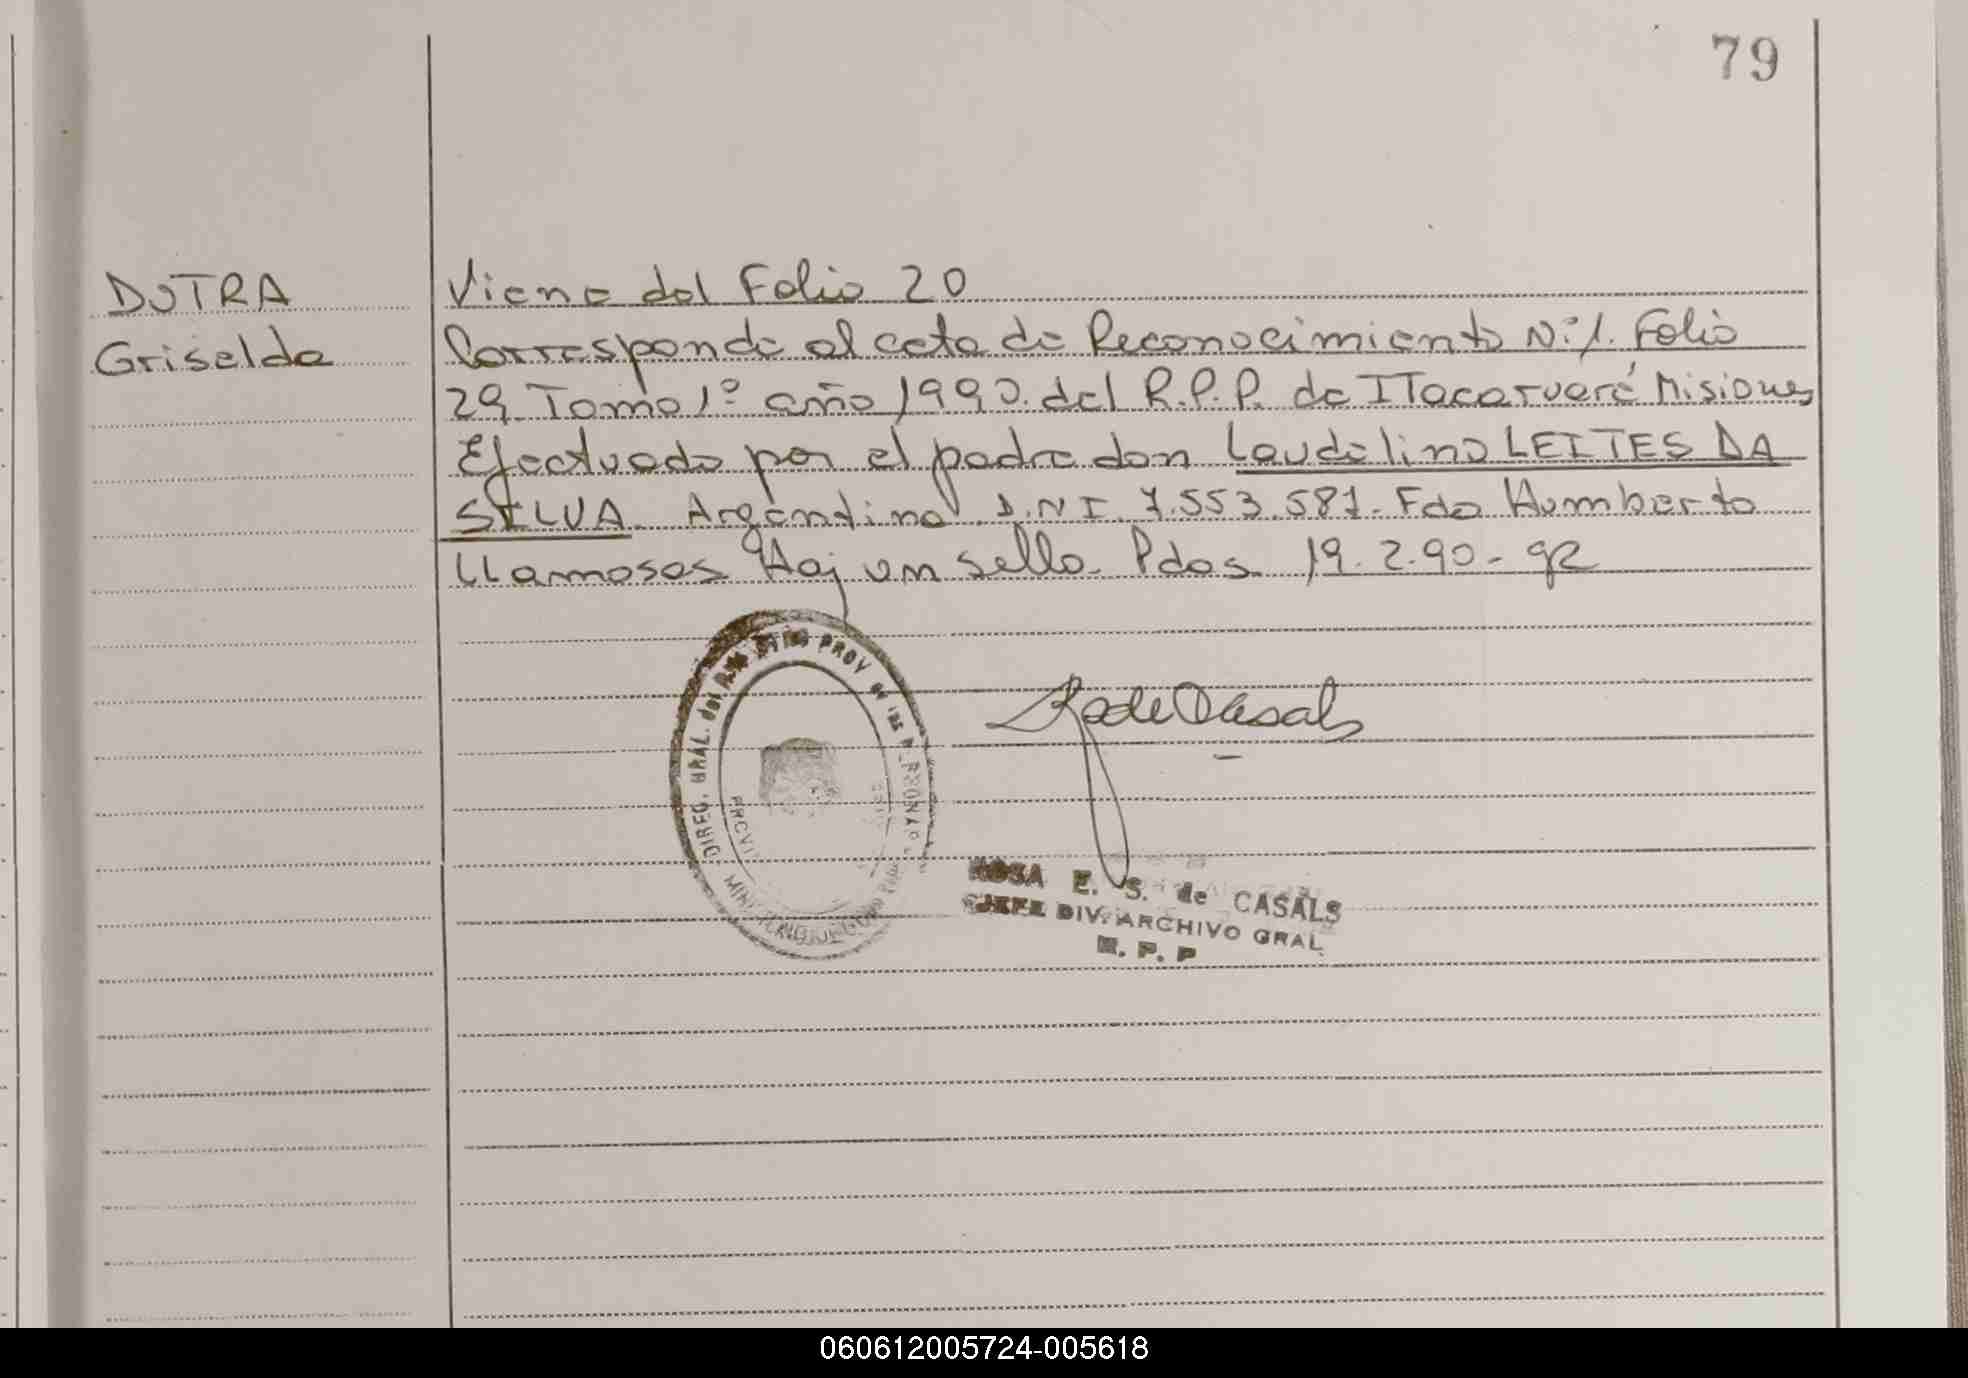 79
DUTRA
Griselda
Viene del Folio 20
Corresponde al acta de Reconocimiento Nº 1. Folio
29 Tomo 1º año 1990. del R.P.P. de ITacaruaré Misiones
Efectuado por el padre don Laudelino LEITES DA
SILVA. Argentino D.N.I. 7.553.587. Fdo Humberto
LLamosas Hay un sello. Pdas. 19.2.90-
DIREC. GRAL. del PROV de las PERSONAS
R de Casals
ROSA E. S. de CASALS
JEFE DIV. ARCHIVO GRAL
R. P. P
060612005724-005618